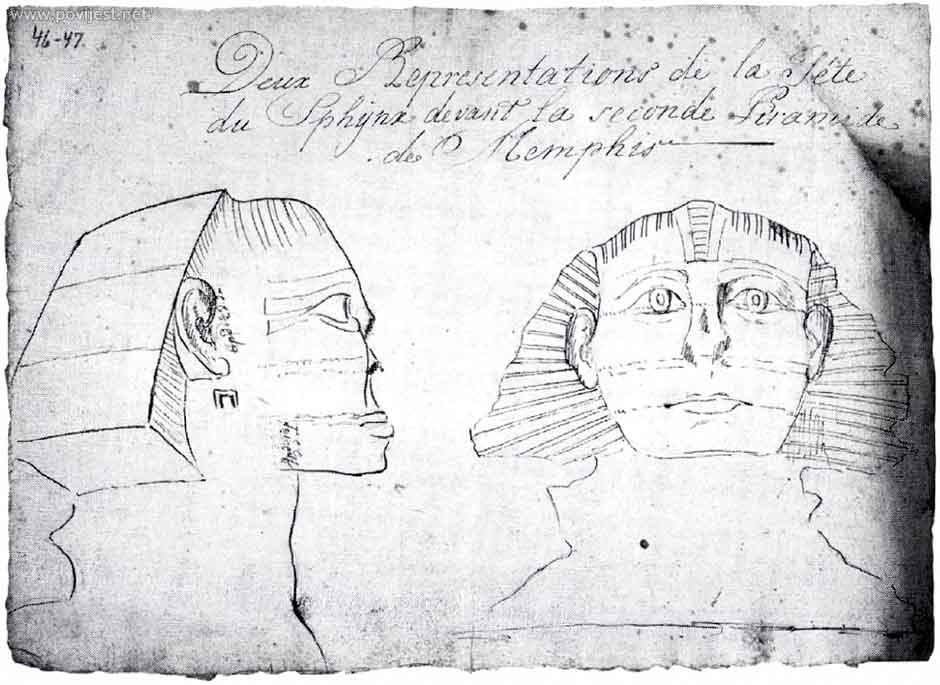 www.povijest.net
46-47
Deux Representations de la Tête
du Sphynx devant la seconde Piramide
de Memphis